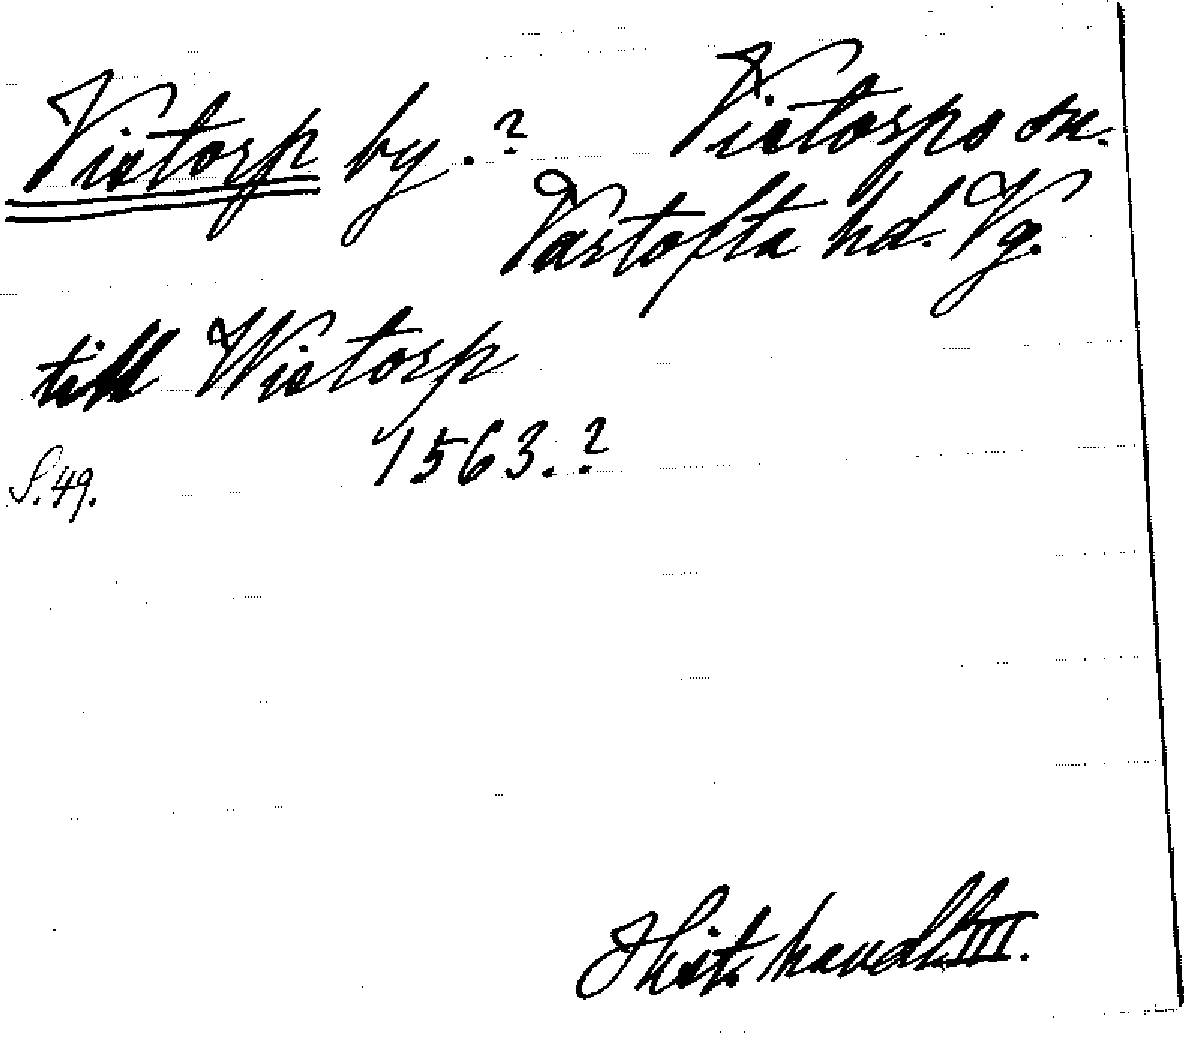 Vistorp by.? Vistorps sn.
Vartofta hd. Vg.
till Wistorp
1563.?
S. 49.
Hist. handl. III.